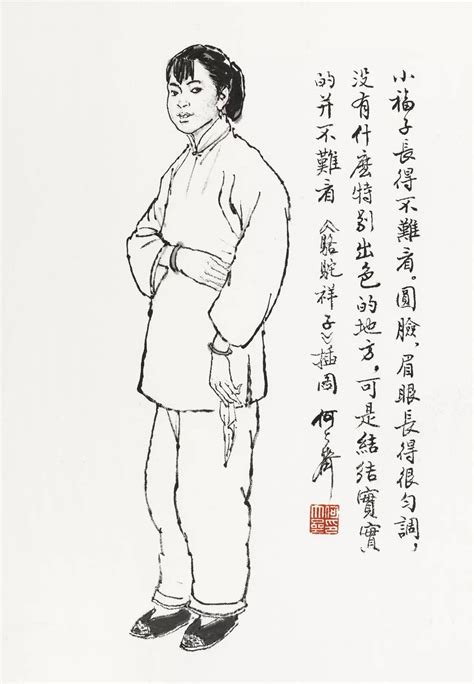 小福子長得不難看。圓臉、眉眼長得很勻調,
没有什麽特别出色的地方,可是結結實實
的并不難看 《駱駝祥子》插图 何大齊